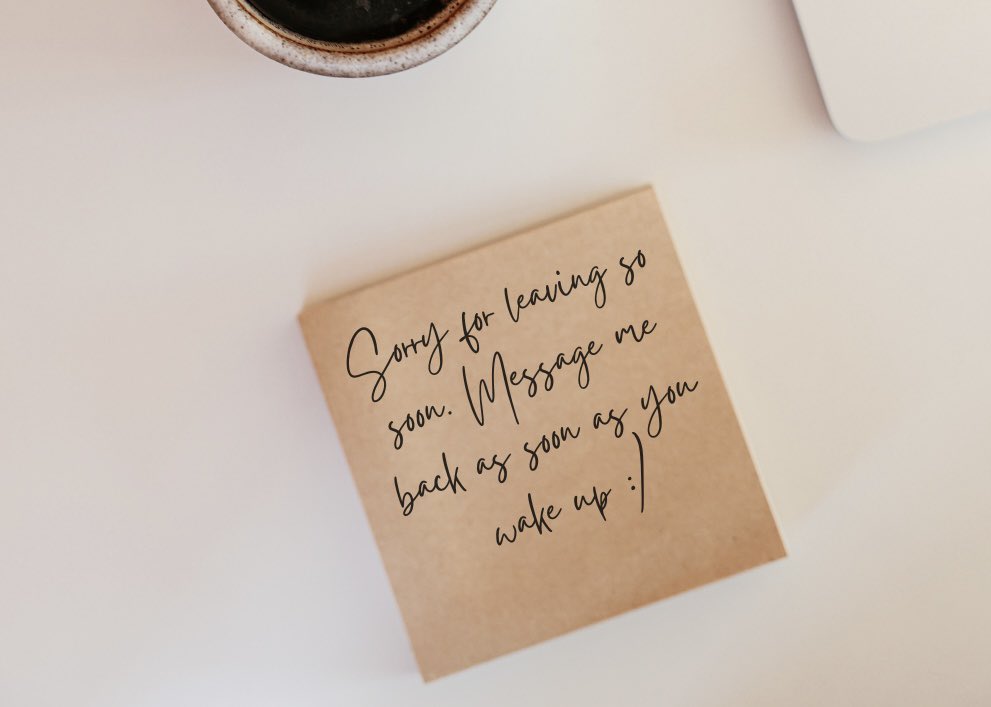 Sorry for leaving so
soon. Message me
back as soon as you
wake up :)